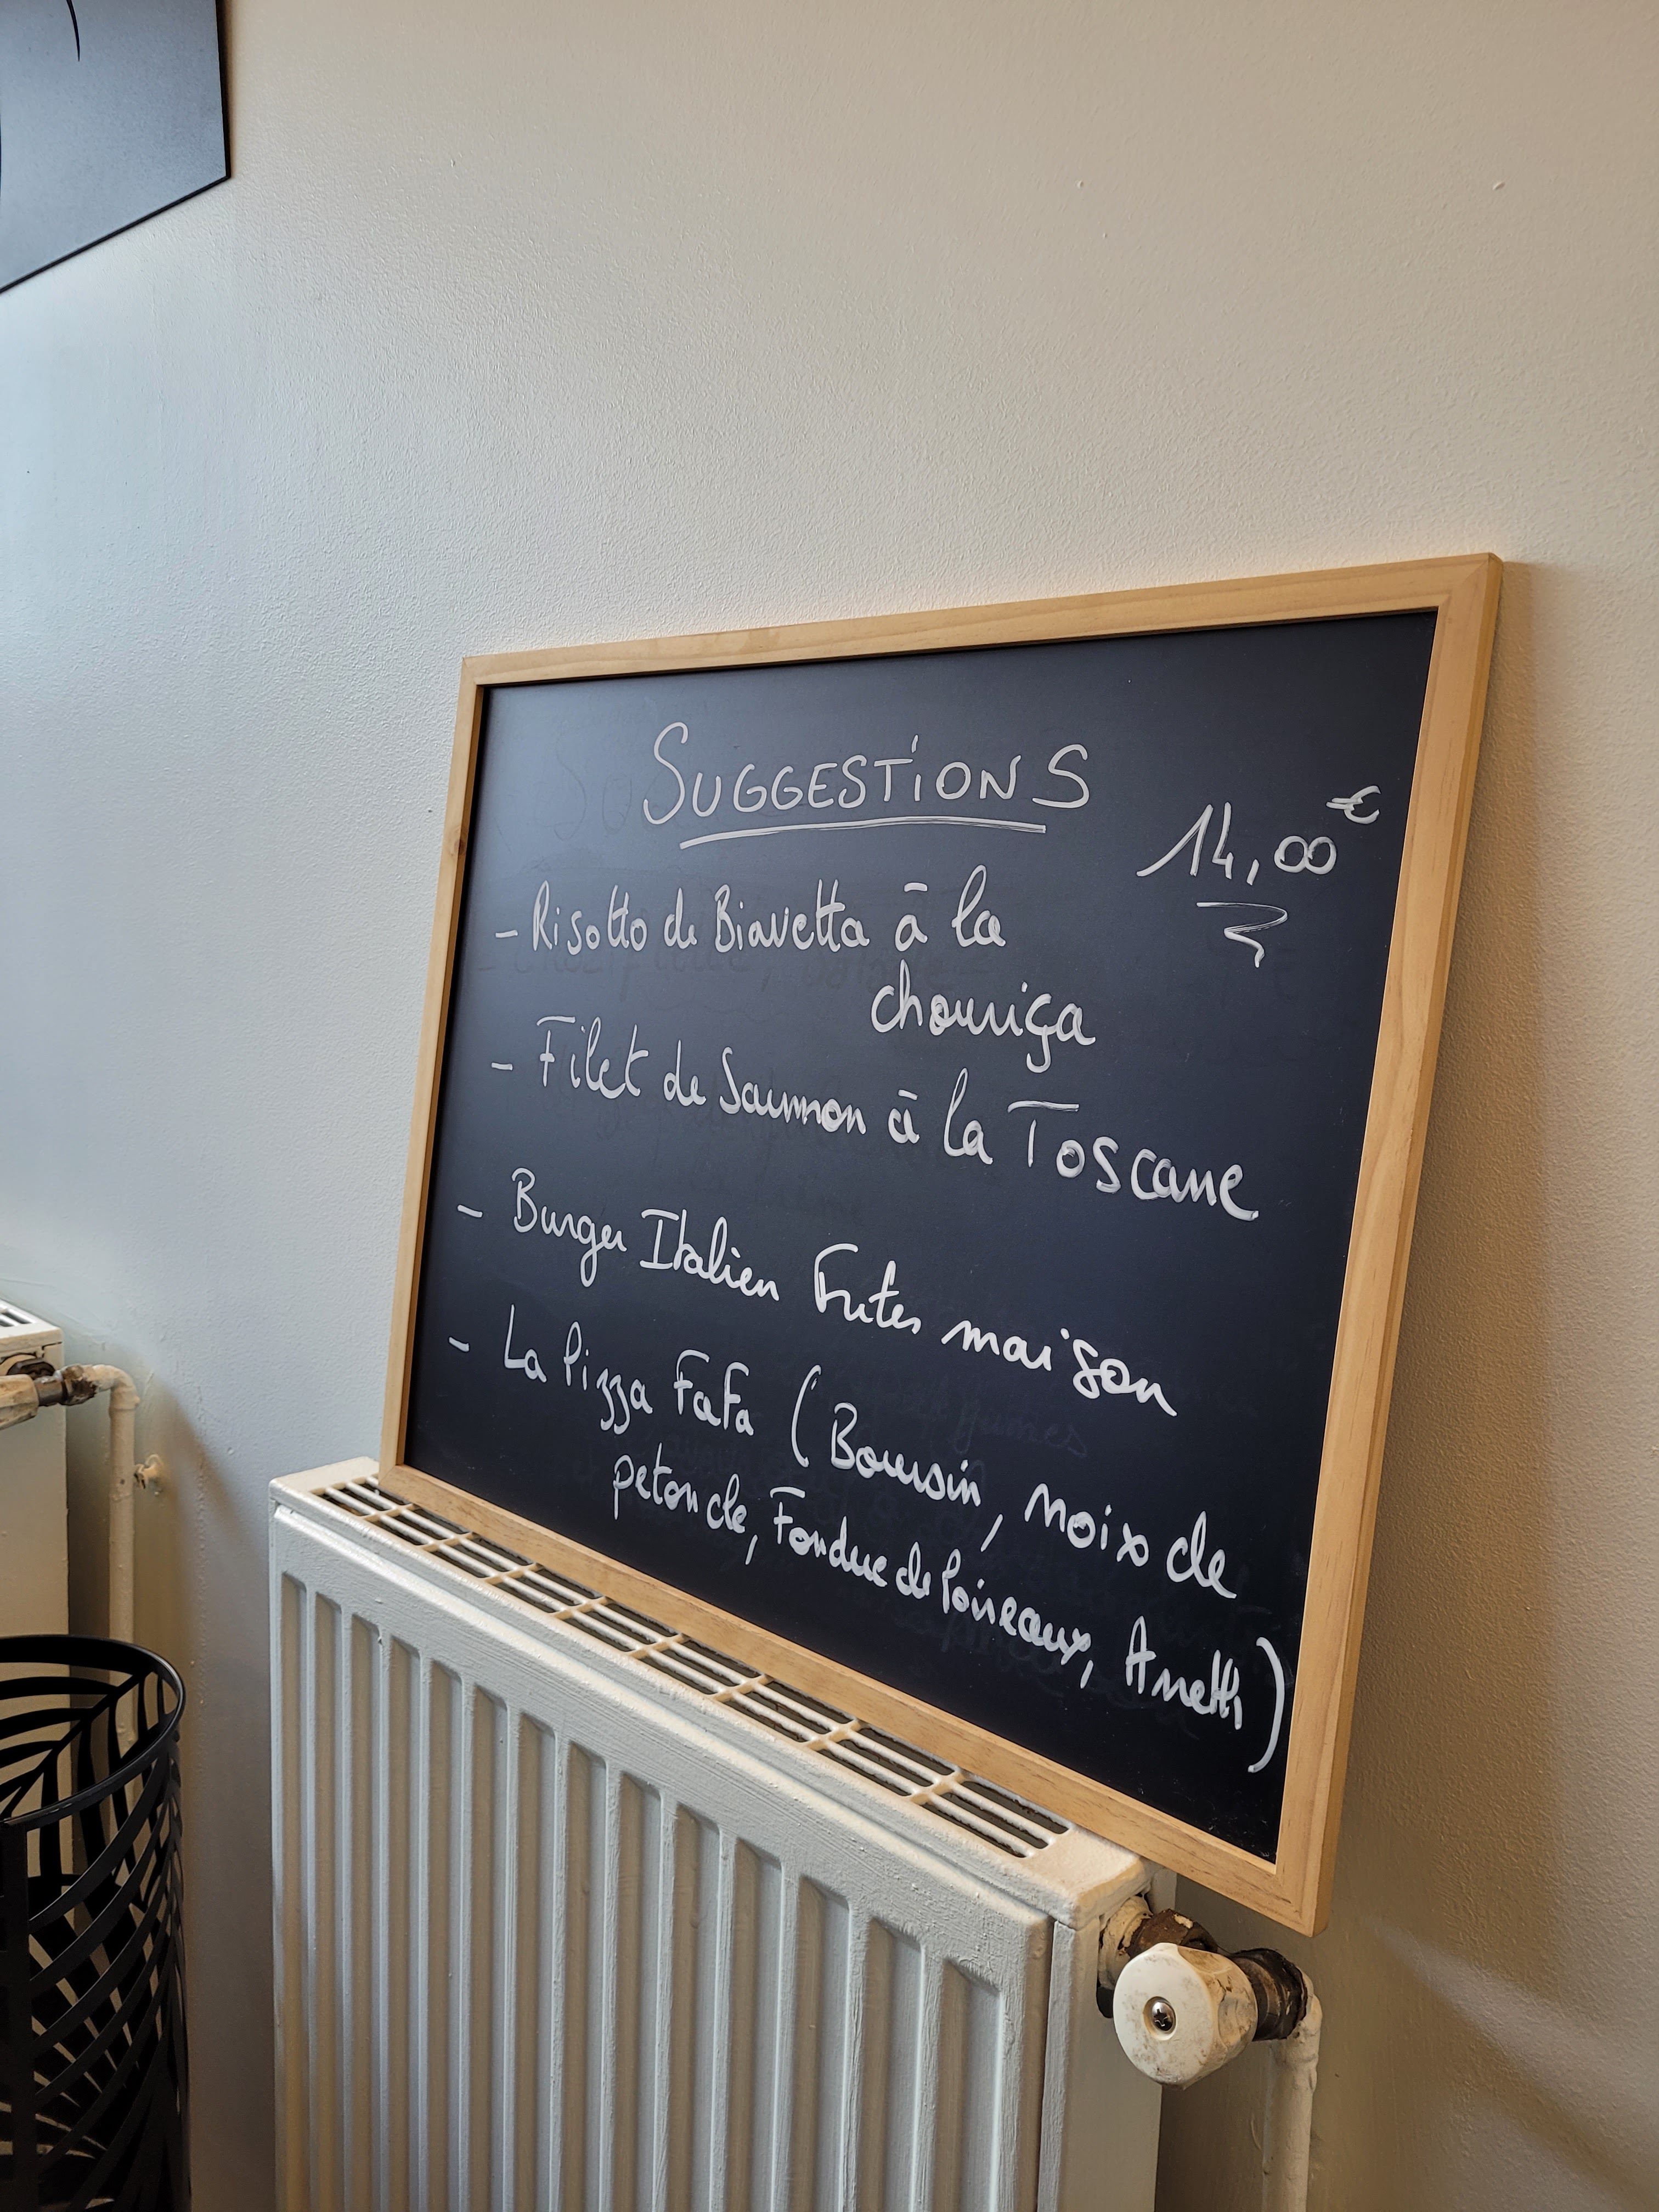 SUGGESTIONS
14,00€
- Risotto de Biavetta à la
chouriça
- Filet de Saumon à la Toscane
- Burger Italien Frites maison
- La Pizza FaFa (Boursin, noix de
petoncle, Fondue de Poireaux, Aneth)